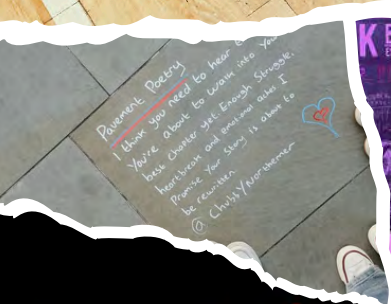 Pavement Poetry
I think you need to hear
You're about to walk into your
best chapter yet. Enough Struggle,
heartbreak and emotional aches I
Promise Your Story is about to
be rewritten
@ChubbyNortherner
K